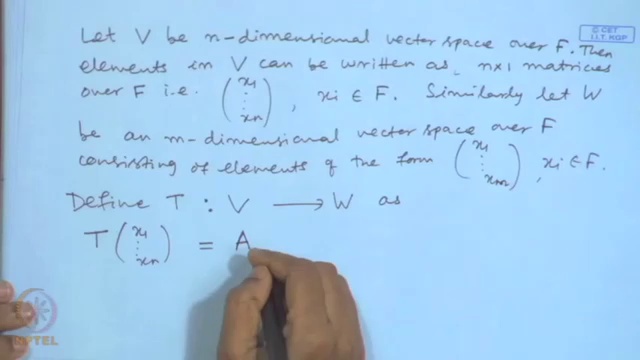 © CET
I.I.T. KGP
Let V be n-dimensional vector space over F. Then
elements in V can be written as, n×1 matrices
over F i.e. (x1 ⋮ xn) , xi ∈ F. Similarly let W
be an m-dimensional vector space over F
consisting of elements of the form (x1 ⋮ xm) , xi ∈ F.
Define T : V ⟶ W as
T (x1 ⋮ xn) = A
NPTEL